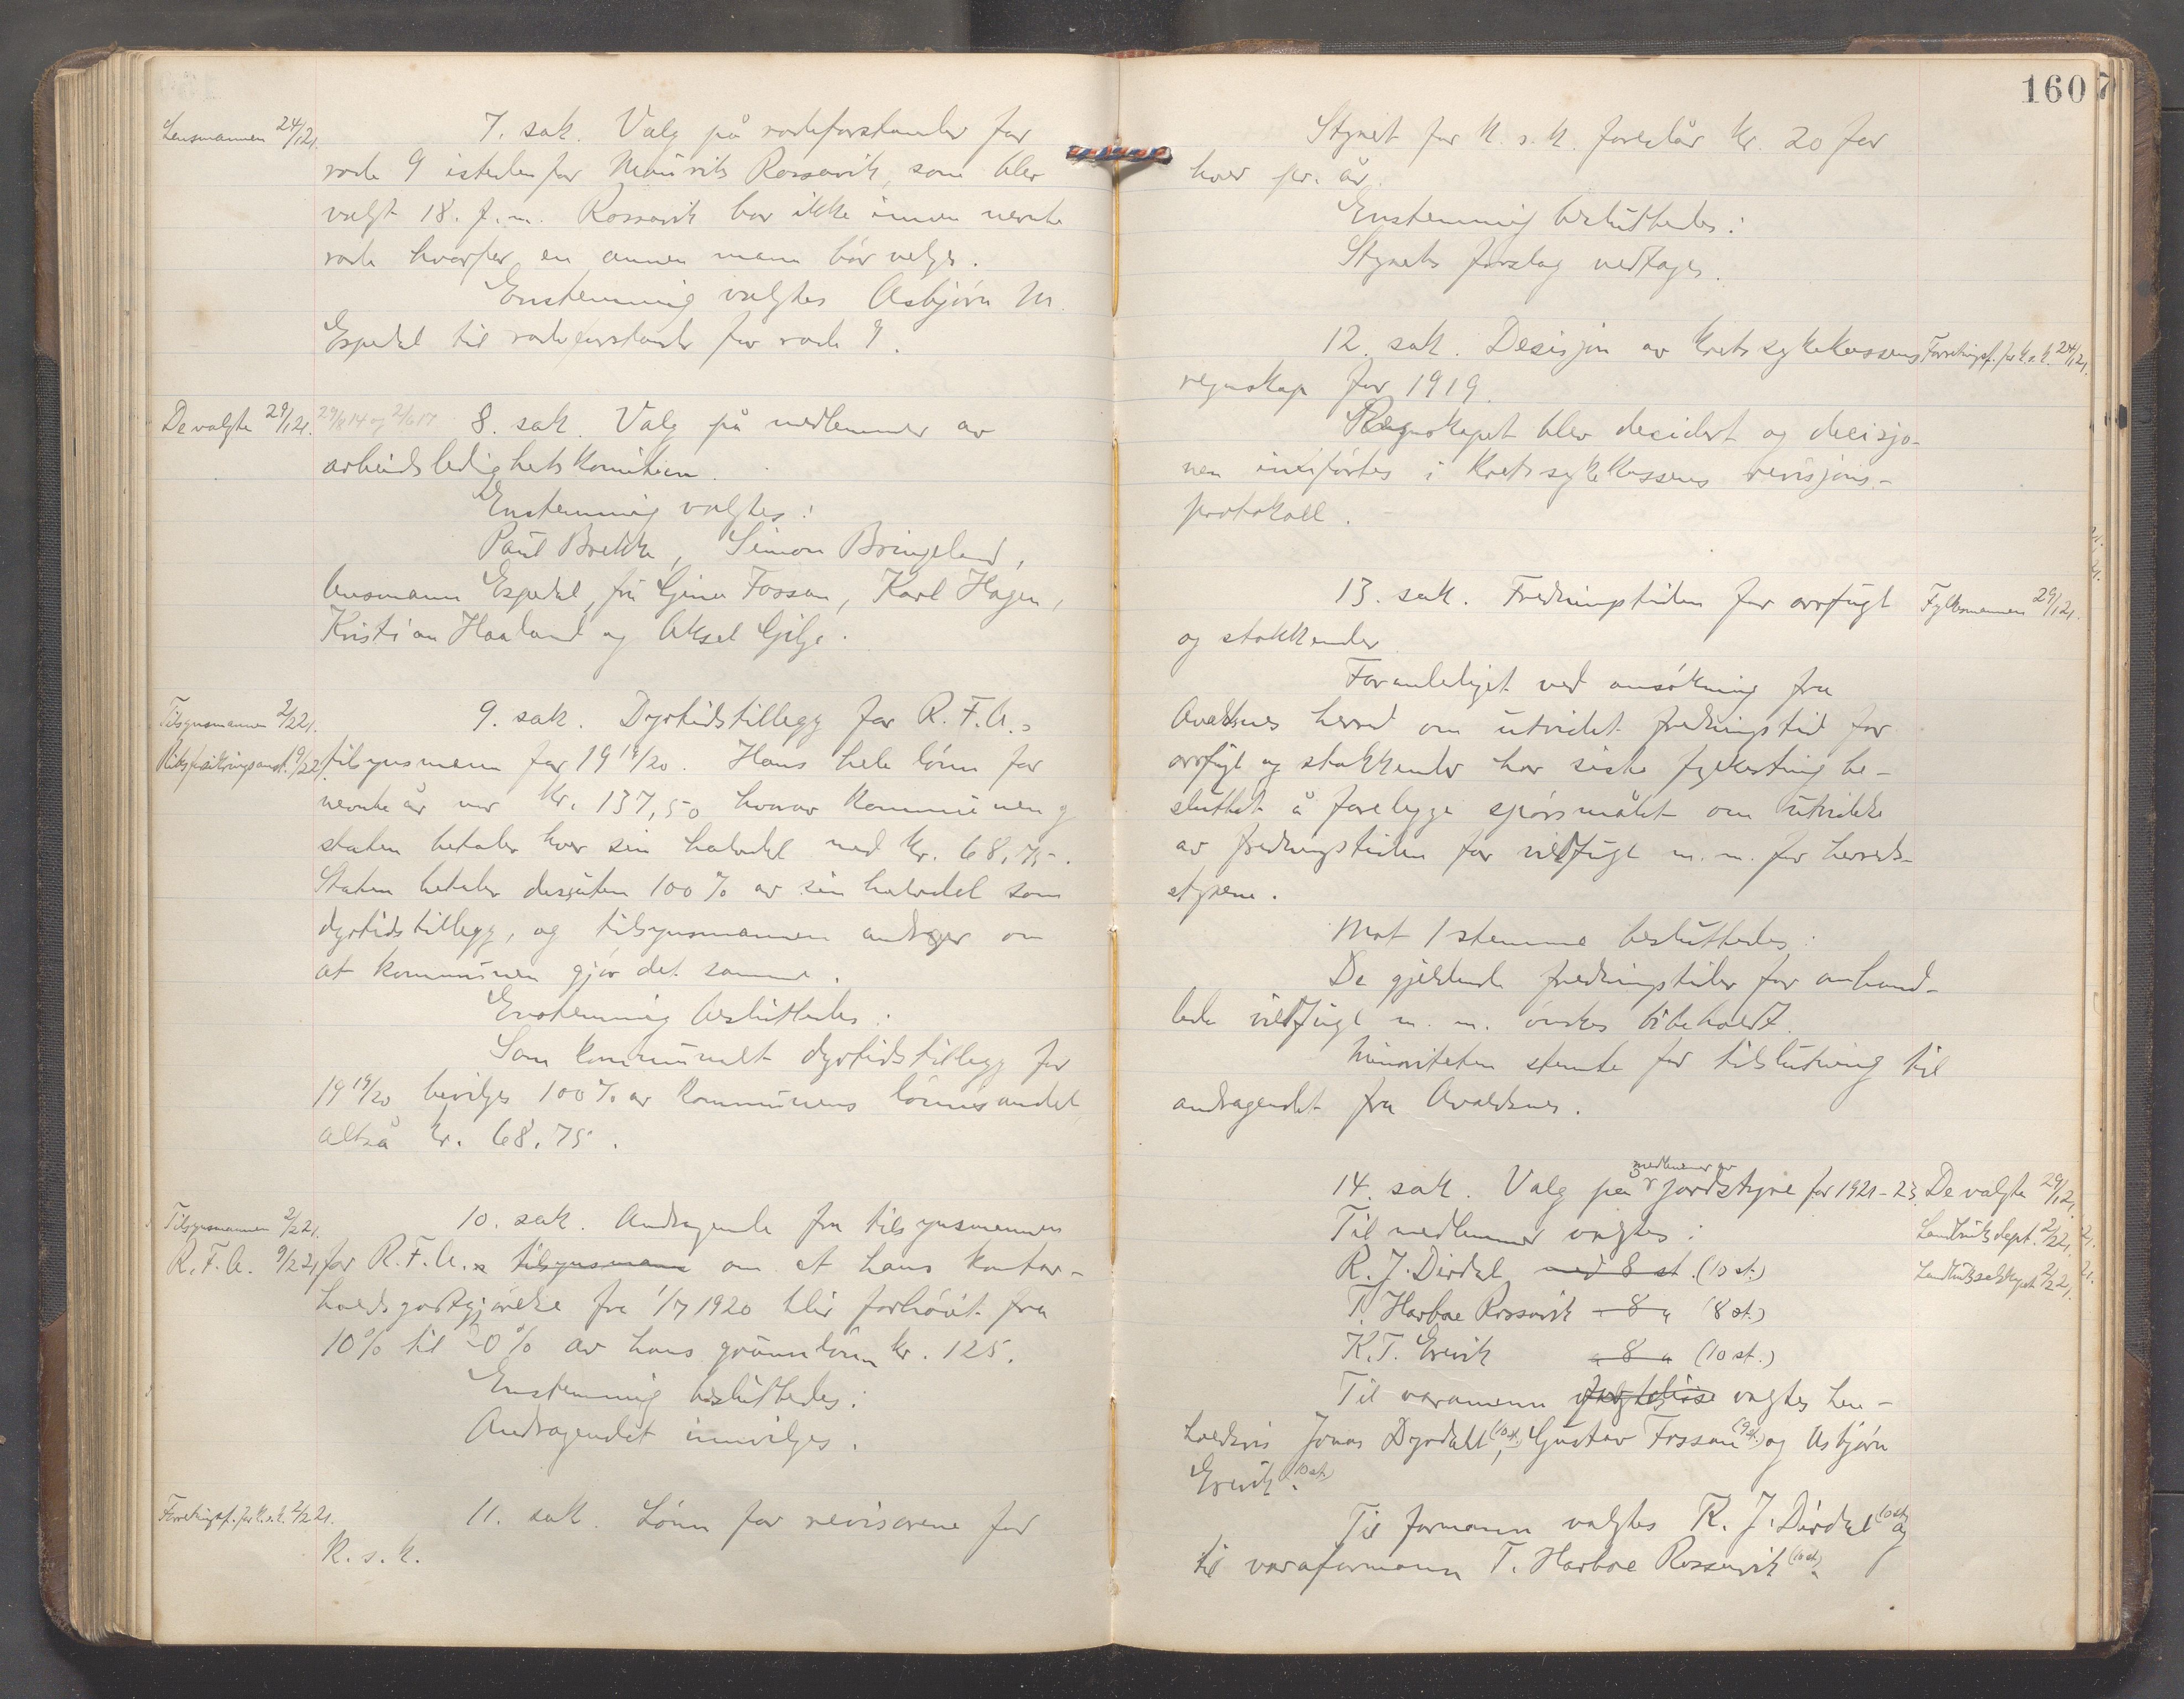 Lensmannen 24/1 21.
7. sak. Valg på rodeforstander for
rode 9 istedenfor Maurits Rossavik, som blev
valgt 18. f. m. Rossavik bor ikke innen nevnte
rode hvorfor en annen mann bør velges.
Enstemmig valgtes Asbjørn M.
Espedal til rodeforstander for rode 9.
De valgte 29/1 21.
29/8 14 og 2/6 17
8. sak. Valg på medlemmer av
arbeidsledighetskomiteen.
Enstemmig valgtes:
Paul Brekke, Simon Bringeland,
lensmann Espedal, fru Gina Fossan, Karl Hagen,
Kristian Haaland og Aksel Gilje.
Tilsynsmannen 2/2 21.
Riksforsikringsanst. 19/2 21.
9. sak. Dyrtidstillegg for R. F. A.s
tilsynsmann for 19 19/20. Hans hele lønn for
nevnte år var kr. 137,50 hvorav kommunen og
staten betaler hver sin halvdel med kr. 68,75.
Staten betaler dessuten 100 % av sin halvdel som
dyrtidstillegg, og tilsynsmannen andrager om
at kommunen gjør det samme.
Enstemmig besluttedes:
Som kommunalt dyrtidstillegg for
19 19/20 bevilges 100 % av kommunens lønnsandel
altså kr. 68.75.
Tilsynsmannen 2/2 21.
R. F. A. 9/2 21.
10. sak. Andragende fra tilsynsmannen
for R. F. A.s tilsynsmann om at hans kontor-
holdsgodtgjørelse fra 1/7 1920 blir forhøiet fra
10 % til 20 % av hans grunnlønn kr. 125.
Enstemmig besluttedes:
Andragendet innvilges.
Forretningsf. for k. s. k. 2/2 21.
11. sak. Lønn for revisorene for
k. s. k.
160
Styret for k. s. k. foreslår kr. 20 for
hver pr. år.
Enstemmig besluttedes:
Styrets forslag vedtages.
12. sak. Desisjon av kretssykekassens
Forretningsf. for k. s. k. 24/1 21.
regnskap for 1919.
Regnskapet blev decidert og decisjo-
nen innførtes i kretssykekassens revisjons-
protokoll.
13. sak. Fredningstiden for orrfugl
Fylkesmannen 29/1 21.
og stokkender
Foranlediget ved ansøkning fra
Avaldsnes herred om utvidet fredningstid for
orrfugl og stokkender har siste fylkesting be-
sluttet å forelegge spørsmålet om utvidelse
av fredningstiden for vildfugl m. m. for herreds-
styrene.
Mot 1 stemme besluttedes:
De gjeldende fredningstider for omhand-
lede vildfugl m. m. ønskes bibeholdt.
Minoriteten stemte for tilslutning til
andragendet fra Avaldsnes.
14. sak. Valg på medlemmer av jordstyre for 1921-23
De valgte 29/1 21.
Landbruksdept. 2/2 21.
Landhusselskapet 2/2 21.
Til medlemmer valgtes:
R. J. Dirdal med 8 st. (10 st.)
T. Harboe Rossavik - 8 " (8 st.)
K. T. Erevik " 8 " (10 st.)
Til varamenn valgtes hen-
holdsvis Jonas Dyrdall (10 st.), Gustav Fossan (9 st.) og Asbjørn
Erevik (10 st.).
Til formann valgtes R. J. Dirdal (10 st.) og
til varaformann T. Harboe Rossavik (10 st.).